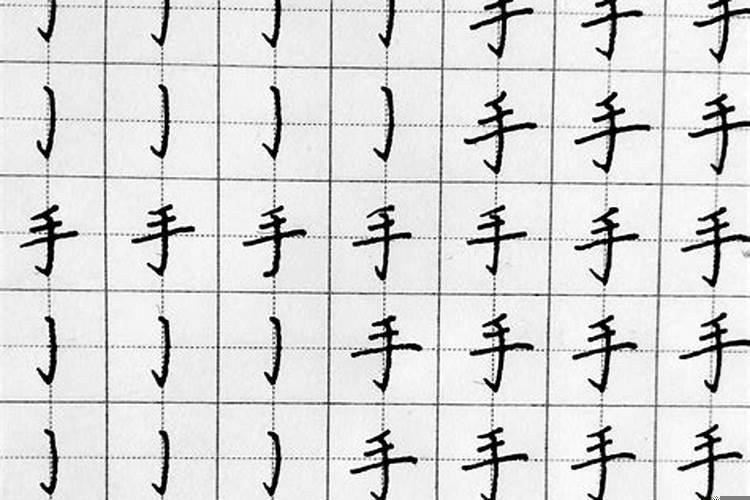 亅 亅 亅 亅 手 手 手
亅 亅 亅 亅 手 手 手
手 手 手 手 手 手 手
亅 亅 亅 手 手 手 手
亅 亅 亅 手 手 手 手